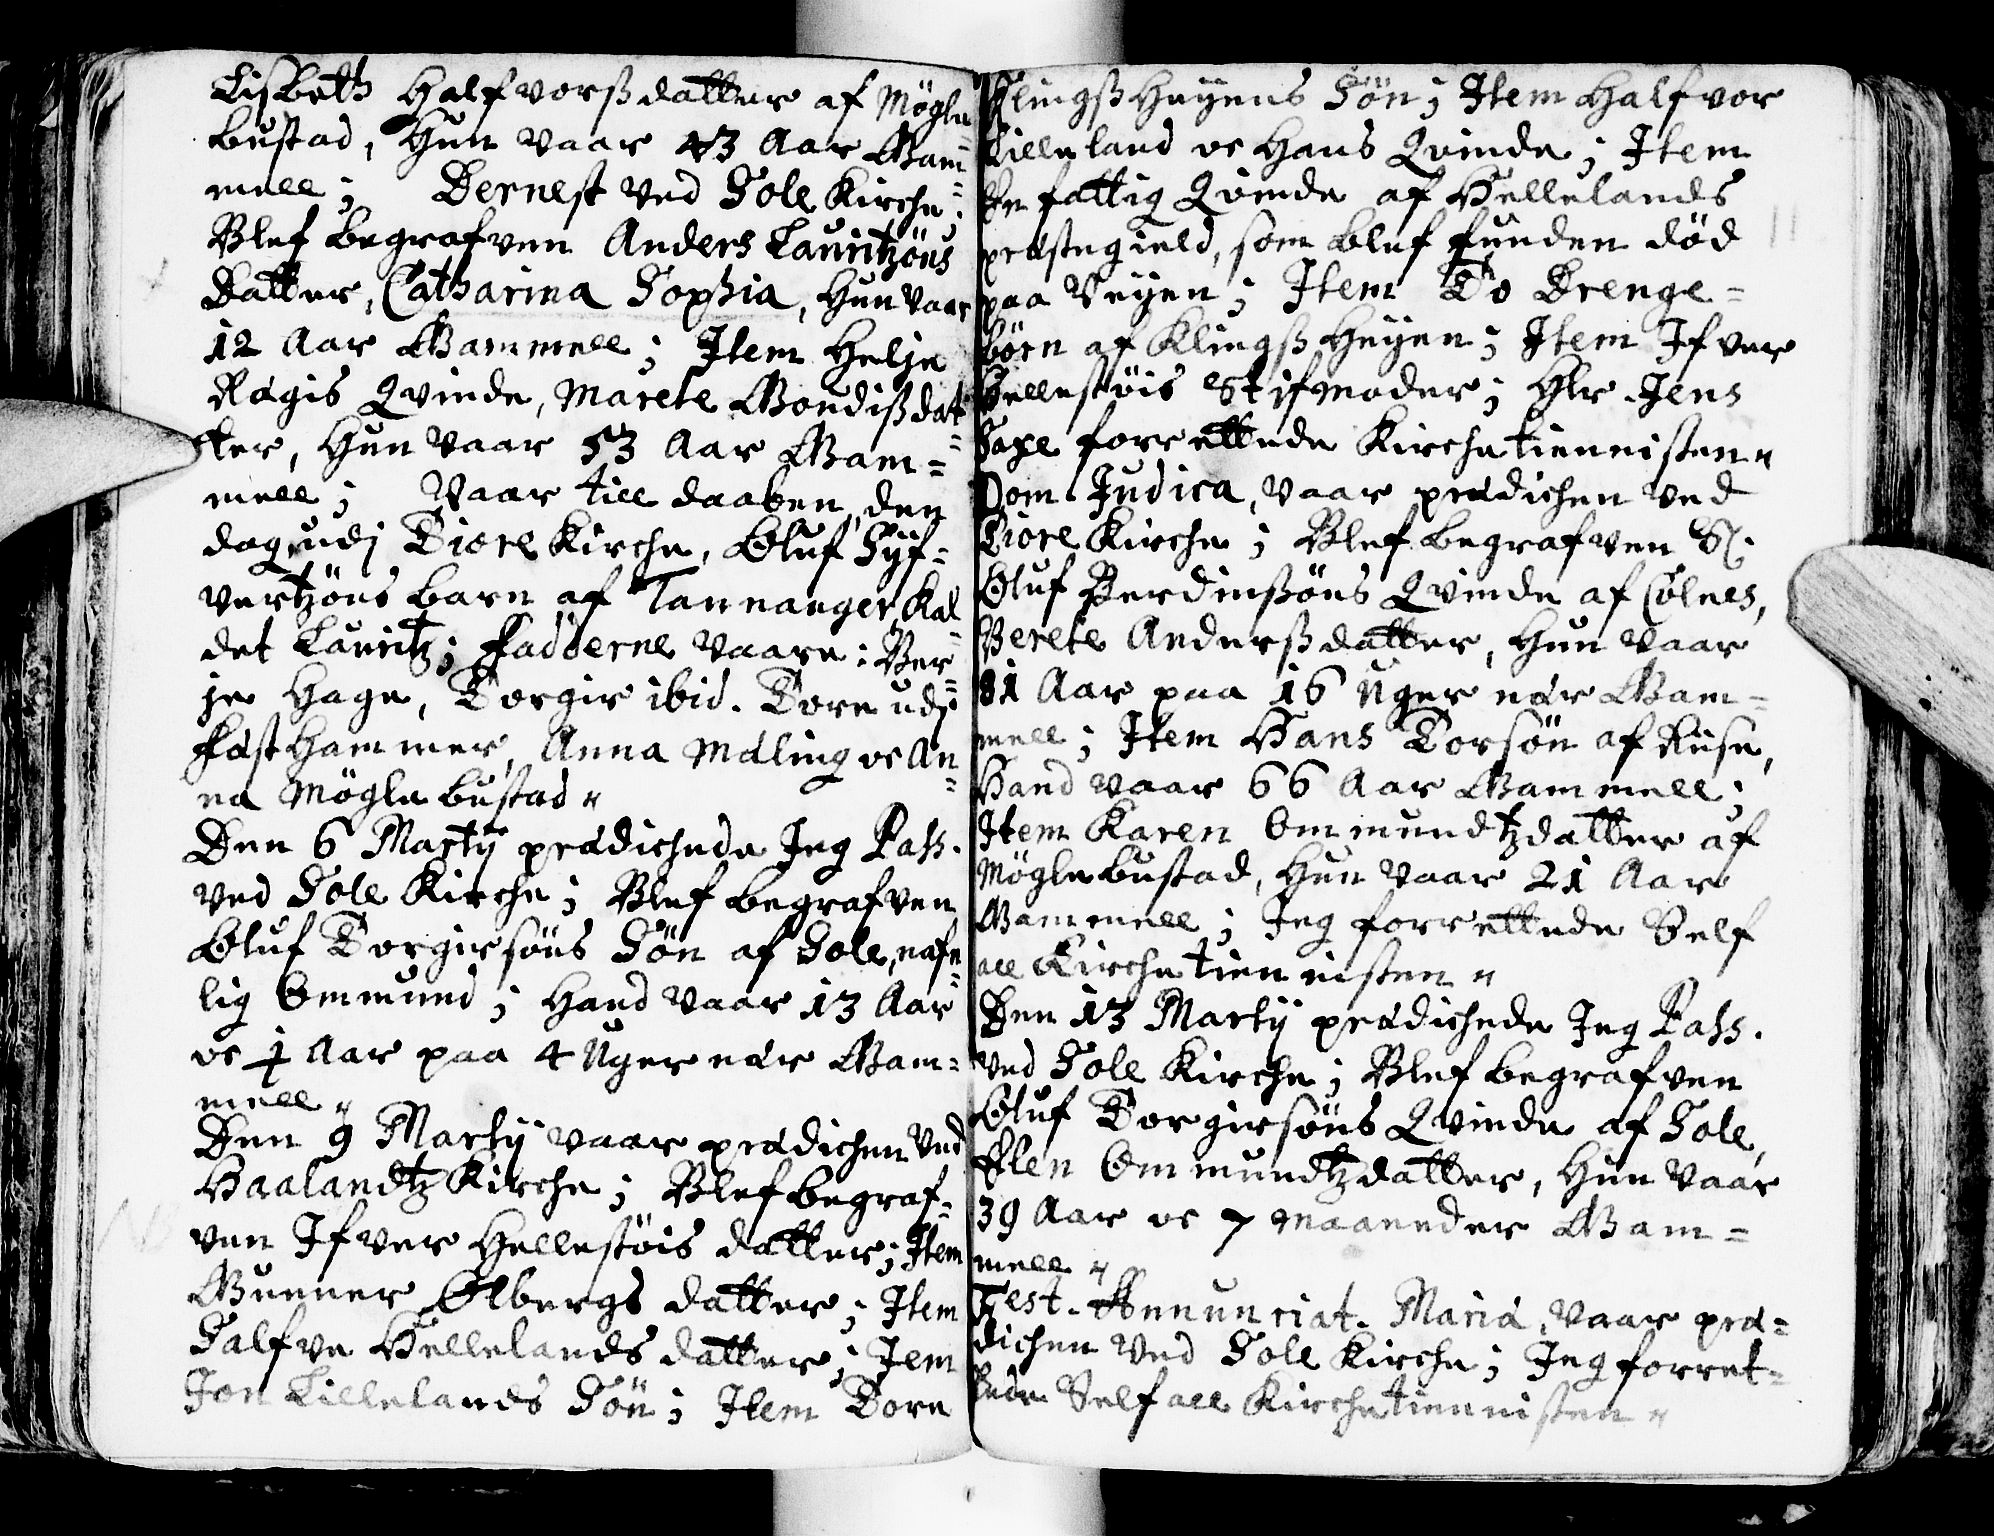 Lisbeth Halfvorsdatter af Mögle
bustad, Hun vaar 43 Aar Gam=
mell; Dernest ved Sole Kirche,
Blef begrafven Anders Lauritzöns
Datter, Catharina Sophia, Hun vaar
12 Aar Gammell; Item Helje
Rægis Qvinde, Marete Gondisdat=
ter, Hun vaar 53 Aar Gam=
mell; Vaar till daaben, den
dag udj Tiore Kirche, Oluf Syf=
vertzöns barn af Tannanger, Kal=
det Lauritz; Fadderne vaare: Ber=
je Hage, Torgir ibid. Tore udj
Fasthammer, Anna Mæling oc An=
na Möglebustad.
Den 6 Martij prædichede Jeg Pass.
ved Sole Kirche; Blef begrafven
Oluf Torgirsöns Sön af Sole, nafn=
lig Ommund; Hand vaar 13 Aar
oc ½ Aar paa 4 Uger nær Gam=
mell.
Den 9 Martij vaar prædichen ved
Haalandtz Kirche; Blef begraf=
ven Ifver Hellestöis datter; Item
Gunner Ølbergs datter; Item
Salfve Hellelands datter; Jem
Jon Lillelands Sön; Item Tore
Klingsheyens Sön; Item Halfvor
Lilleland oc Hans Qvinde; Item
En fattig Qvinde af Hellelands
præstegield, som blef funden död
paa Veyen; Item To Drenge=
börn af Klingsheyen; Item Ifver
Hellestöis Stifmoder; Hr. Jens
Saxe forrettede Kirchetiennisten.
Dom. Judica, vaar prædichen ved
Tiore Kirche; Blef begrafven Sl.
Oluf Berdinsöns Qvinde af Cölnes,
Berete Andersdatter, Hun vaar
81 Aar paa 16 Uger nær Gam=
mell; Item Hans Torsön af Risa,
Hand vaar 66 Aar Gammell;
Item Karen Ommundtzdatter af
Möglebustad, Hun vaar 21 Aar
Gammell; Jeg forrettede Self
all Kirchetiennisten.
Den 13 Martij prædichede Jeg Pass.
ved Sole Kirche; Blef begrafven
Oluf Torgirsöns Qvinde af Sole,
Elen Ommundtzdatter, Hun vaar
39 Aar oc 7 maaneder Gam=
mell.
Fest. Annunciat. Mariæ, vaar præ=
dichen ved Sole Kirche; Jeg forret=
tede Self all Kirchetiennisten.